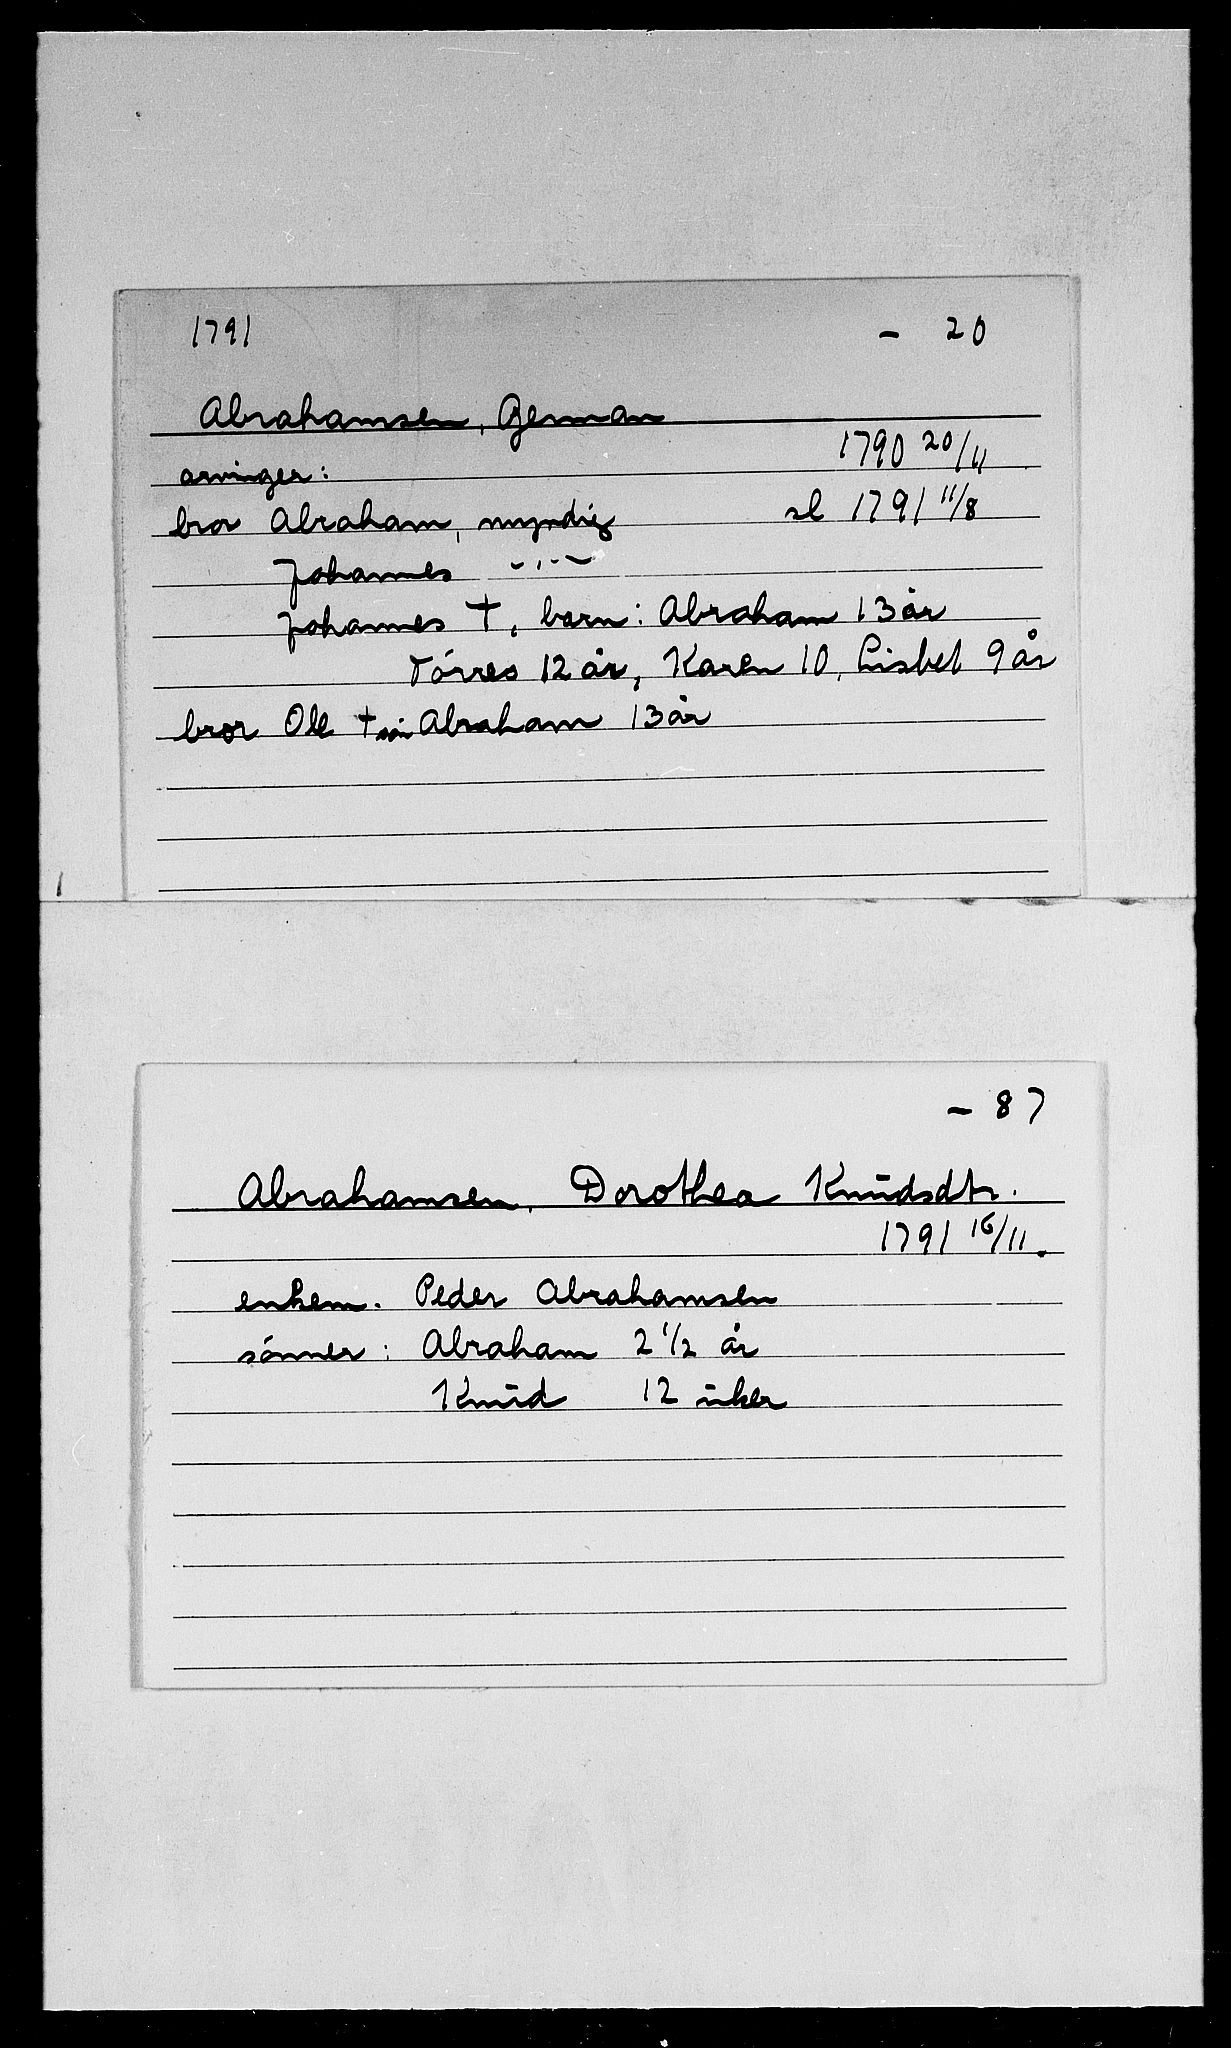 1791 - 20
Abrahamsen, German
arvinger: 1790 20/11
bror Abraham, myndig sl 1791 11/8
Johannes -"-
Johannes †, barn: Abraham 13 år
Tórres 12 år, Karen 10, Lisbet 9 år
bror Ole † søn Abraham 13 år
- 87
Abrahamsen, Dorothea Knudsdtr.
1791 16/11.
enkem. Peder Abrahamsen
sónner: Abraham 2 1/2 år
Knud 12 uker